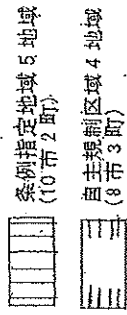 条例指定地域5地域
(10市2町)
自主規制区域4地域
(8市3町)